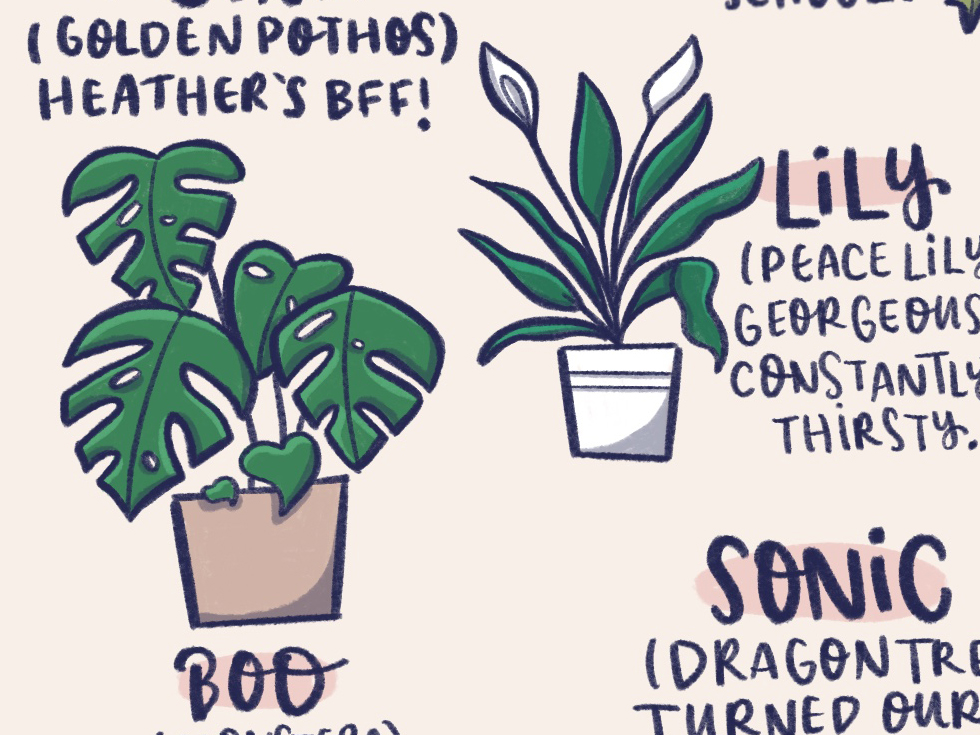 (GOLDEN POTHOS)
HEATHER'S BFF!
LiLY
(PEACE LiLY
GEORGEOUS
CONSTANTLY
THiRSTY.
BOO
SONiC
(DRAGON TRE
TURNED OUR